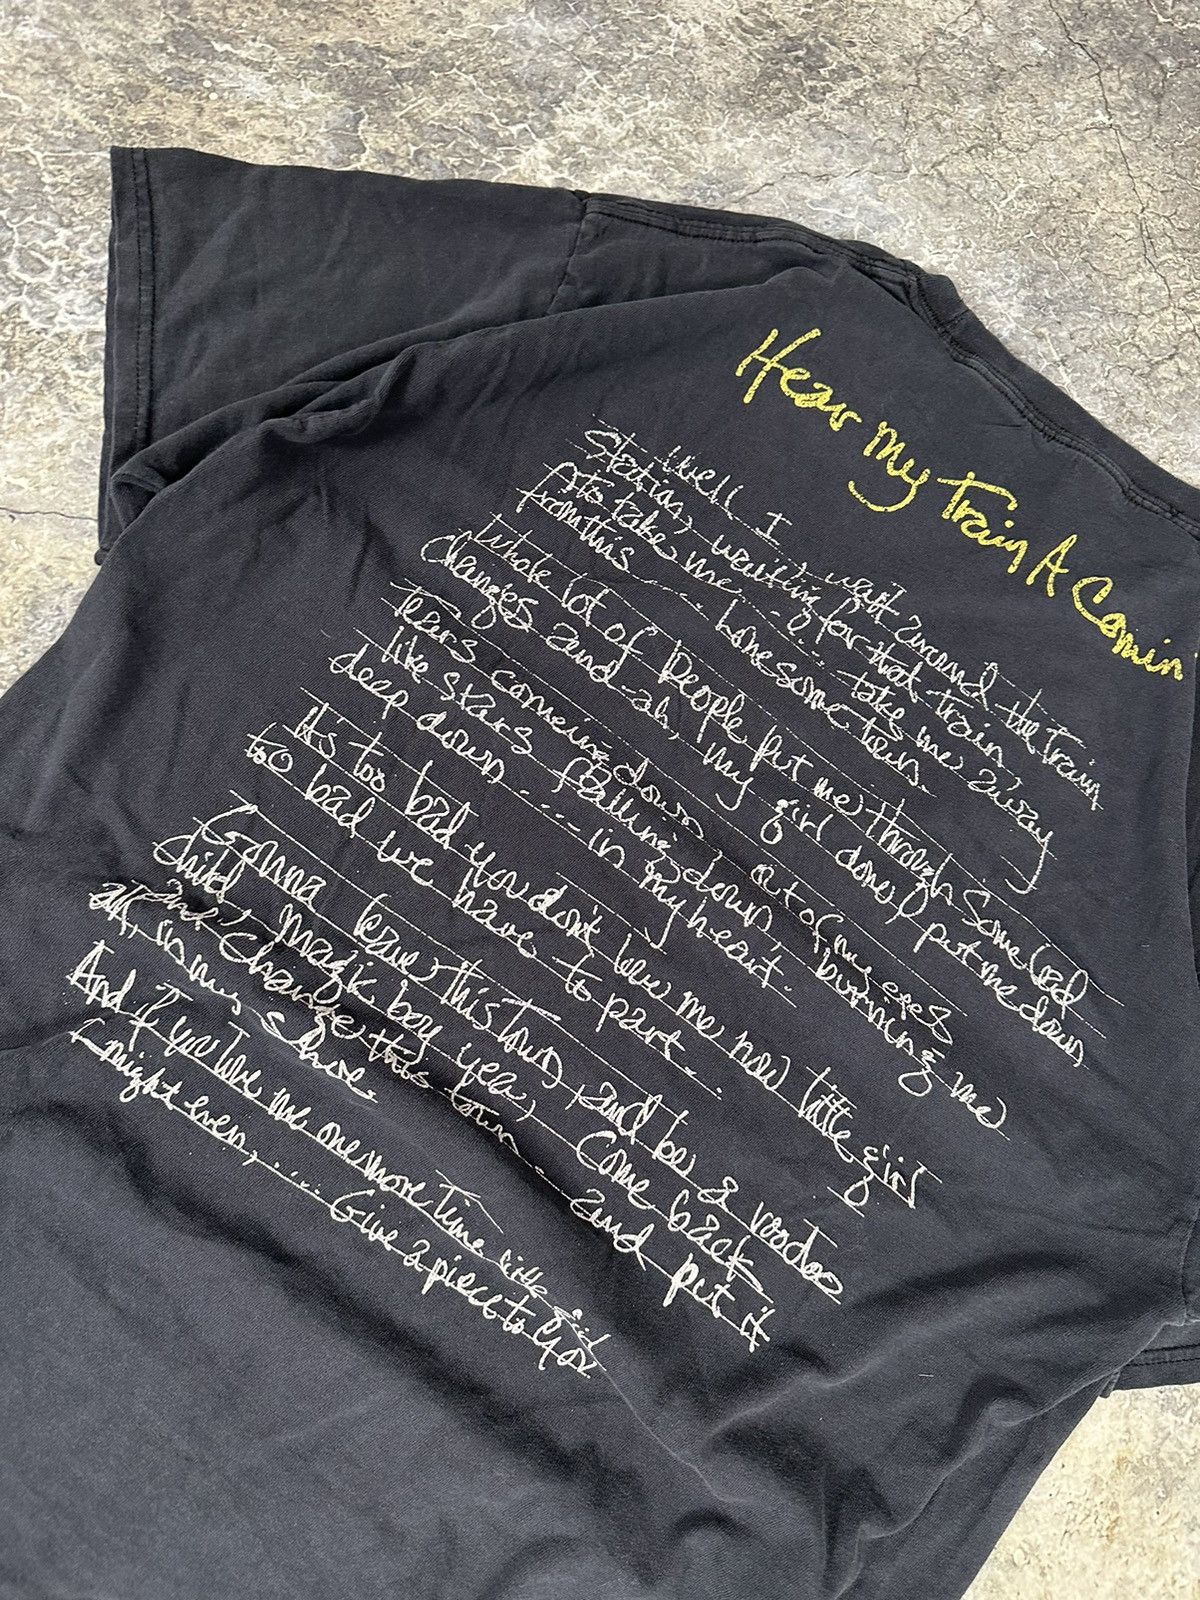 Hear My Train A Comin'
Well I wait around the Train
Station, waiting for that train
to take me..... take me away
from this ..... lonesome town
Whole lot of People put me through Some
Changes and-ah, my girl done put me down
Tears comeing down out of my eyes
like stars falling down burning me
deep down .... in my heart.
It's too bad you don't love me now little girl
too bad we have to part...
Gonna leave this Town, and be a voodoo
child magic boy yea, Come back
and change this town.. and put it
all, in my shoe.
And If you love me one more Time little girl
I might even, ..... Give a piece to you